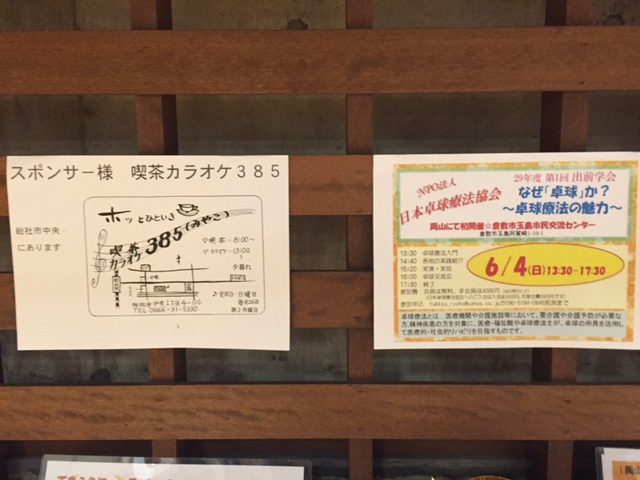 スポンサー様 喫茶カラオケ385
総社市中央
にあります
ホッとひといき
喫茶
カラオケ
385(みやこ)
夕暮れ
定休日-日曜日
第2月曜日
NPO法人
日本卓球療法協会
29年度 第1回 出前学会
なぜ「卓球」か?
~卓球療法の魅力~
岡山にて初開催☆倉敷市玉島市民交流センター
倉敷市玉島阿賀崎1-10-1
6/4(日)13:30-17:30
13:30 卓球療法入門
14:40 各地の実践紹介
15:20 実演・実技
16:30 卓球交流会
17:30 終了
卓球療法とは…医療機関や介護施設等において、要介護や介護予防が必要な
方、精神疾患の方を対象に、医療・福祉職や卓球療法士が、卓球の用具を活用し
て医療的・社会的リハビリを目指すものです。